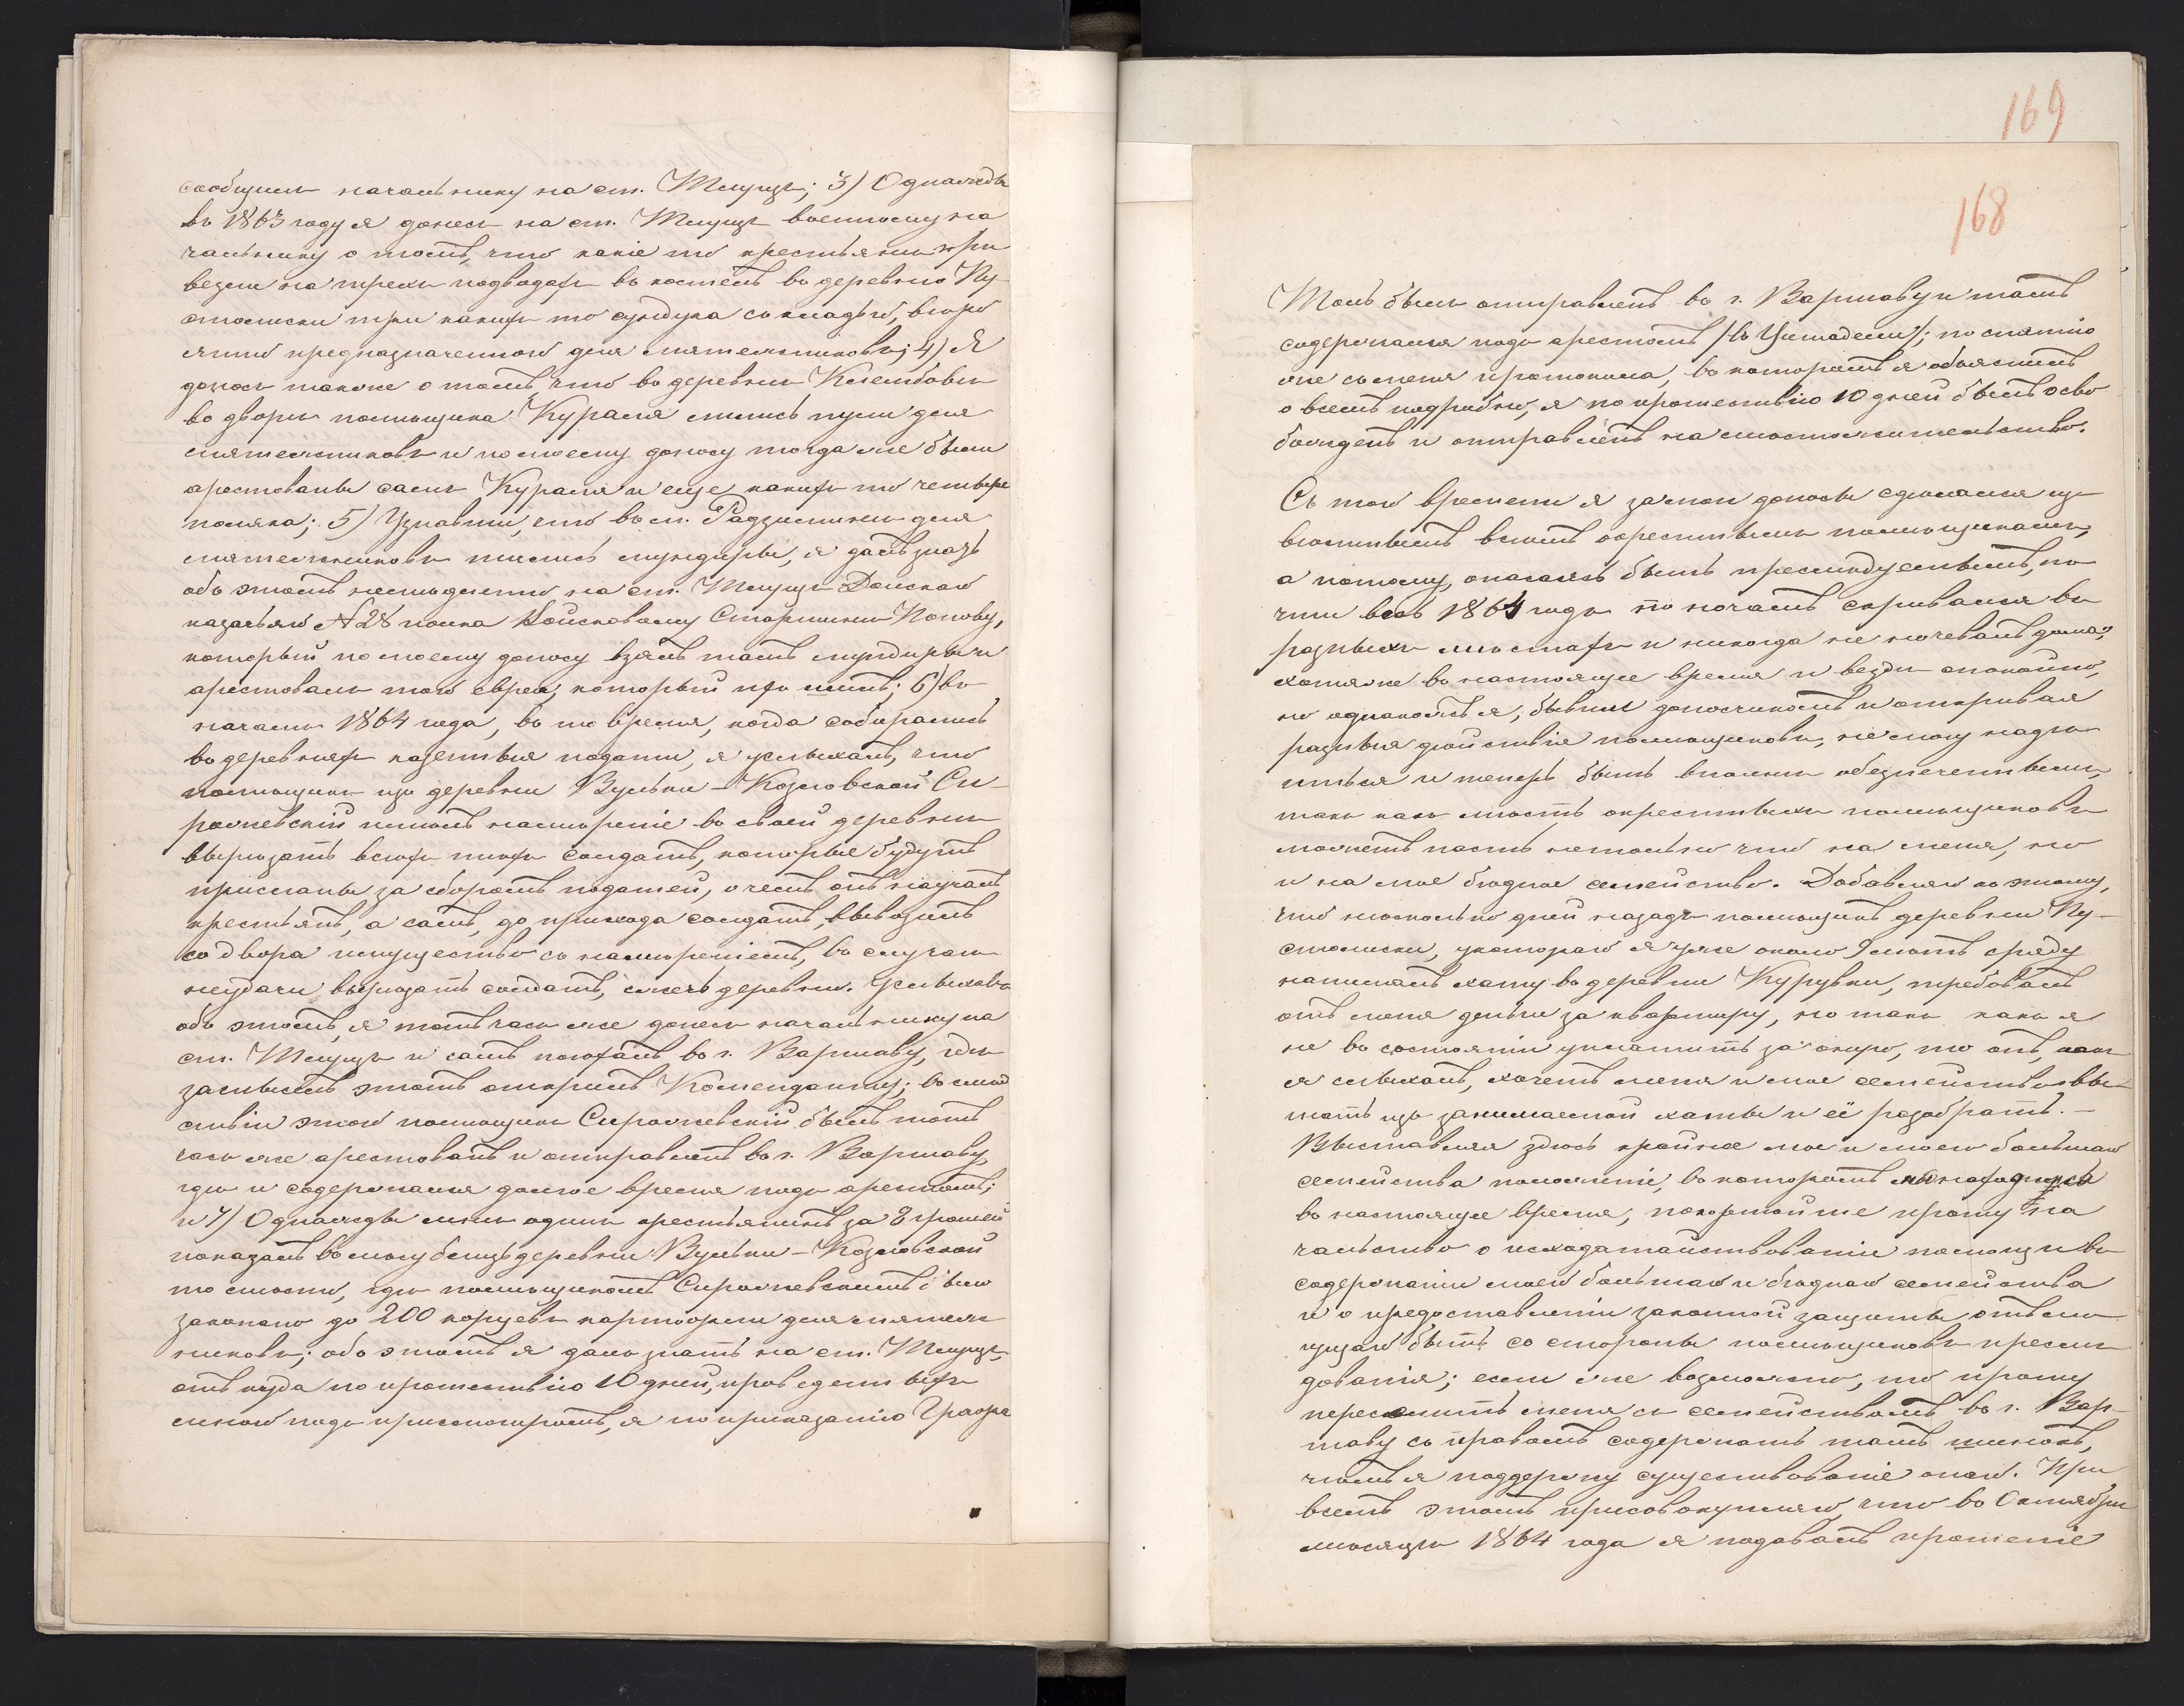 сообщилъ начальнику на ст. Тлущъ; 3) Однажды
въ 1863 году я донесъ на ст. Тлущъ военному на
чальнику о томъ, что какіе то крестьяне при
везли на трехъ подводахъ въ костелъ въ деревню По-
столиски три какихъ то сундука съ кладью, вѣро
ятно предназначенною для мятежниковъ; 4) Я
донесъ также о томъ, что въ деревнѣ Клембовѣ
во дворѣ помѣщика Купаля лились пули для
мятежниковъ и по моему доносу тогда же были
арестованы самъ Купаля и еще какихъ то четыре
поляка; 5) Узнавши, что въ м. Радзиминѣ для
мятежниковъ шились мундиры, я далъ знать
объ этомъ немедленно на ст. Тлущъ Донскаго
казачьяго №28 полка Войсковому Старшинѣ Попову,
который по моему доносу взялъ тамъ мундиры и
арестовалъ того еврея, который ихъ шилъ; 6) въ
началѣ 1864 года, въ то время, когда собирались
въ деревняхъ казенныя подати, я услыхалъ, что
помѣщикъ изъ деревни Вульки-Козловской Си-
рожевскій имѣлъ намѣреніе въ своей деревнѣ
вырѣзать всѣхъ тѣхъ солдатъ, которые будутъ
присланы за сборомъ податей, о чемъ онъ научалъ
крестьянъ, а самъ, до прихода солдатъ, вывозилъ
со двора имущество съ намѣреніемъ, въ случаѣ
неудачи вырѣзать солдатъ, сжечь деревню. Услыхавъ
объ этомъ, я тотъ часъ же донесъ начальнику на
ст. Тлущъ и самъ поѣхалъ въ г. Варшаву, гдѣ
замыселъ этотъ открылъ Коменданту; въ слѣд
ствіи этого помѣщикъ Сирожевскій былъ тотъ
часъ же арестованъ и отправленъ въ г. Варшаву,
гдѣ и содержался долгое время подъ арестомъ;
и 7) Однажды мнѣ одинъ крестьянинъ за 8 грошей
показалъ въ лѣсу близъ деревни Вульки-Козловской
то мѣсто, гдѣ помѣщикомъ Сирожевскимъ было
закопано до 200 корцевъ картофеля для мятеж
никовъ; объ этомъ я далъ знать на ст. Тлущъ,
отъ куда по прошествію 10 дней, проведенныхъ
мною подъ присмотромъ, я по приказанію Графа
169
168
Толь былъ отправленъ въ г. Варшаву и тамъ
содержался подъ арестомъ /въ Цитадели/; по снятію
же съ меня протокола, въ которомъ я объяснилъ
о всемъ подробно, я по прошествію 10 дней былъ осво
божденъ и отправленъ на мѣсто жительство.
Съ того времени я за мои доносы сдѣлался из
вѣстнымъ всѣмъ окрестнымъ помѣщикамъ,
а потому, опасаясь быть преслѣдуемымъ, по
чти весь 1864 годъ по ночамъ скрывался въ
разныхъ мѣстахъ и никогда не ночевалъ дома;
хотя же въ настоящее время и вездѣ спокойно,
но однако жъ я, бывши доносчикомъ и открывая
разныя дѣйствія помѣщиковъ, не могу надѣ
яться и теперь быть вполнѣ обезпеченнымъ,
такъ какъ месть окрестныхъ помѣщиковъ
можетъ пасть не только что на меня, но
и на мое бѣдное семейство. Добавляю къ этому,
что нѣсколько дней назадъ помѣщикъ деревни По-
столиски, у котораго я уже около 9 лѣтъ сряду
нанималъ хату въ деревнѣ Курувки, требовалъ
отъ меня деньги за квартиру, но такъ какъ я
не въ состояніи уплатить за оную, то онъ, какъ
я слыхалъ, хочетъ меня и мое семейство вы-
гнать изъ занимаемой хаты и её разобрать. –
Выставляя здѣсь крайнее мое и моего большаго
семейства положеніе, въ которомъ мы находимся
въ настоящее время, покорнѣйше прошу На
чальство о исходатайствованіе помощи въ
содержаніи моего большаго и бѣднаго семейства
и о предоставленіи законной защиты отъ мо
гущаго быть со стороны помѣщиковъ преслѣ
дованія; если же возможно, то прошу
переселить меня съ семействомъ въ г. Вар-
шаву съ правомъ содержать тамъ шинокъ,
чѣмъ я поддержу существованіе оной. При
всемъ этомъ присовокупляю, что въ Октябрѣ
мѣсяцѣ 1864 года я подавалъ прошеніе